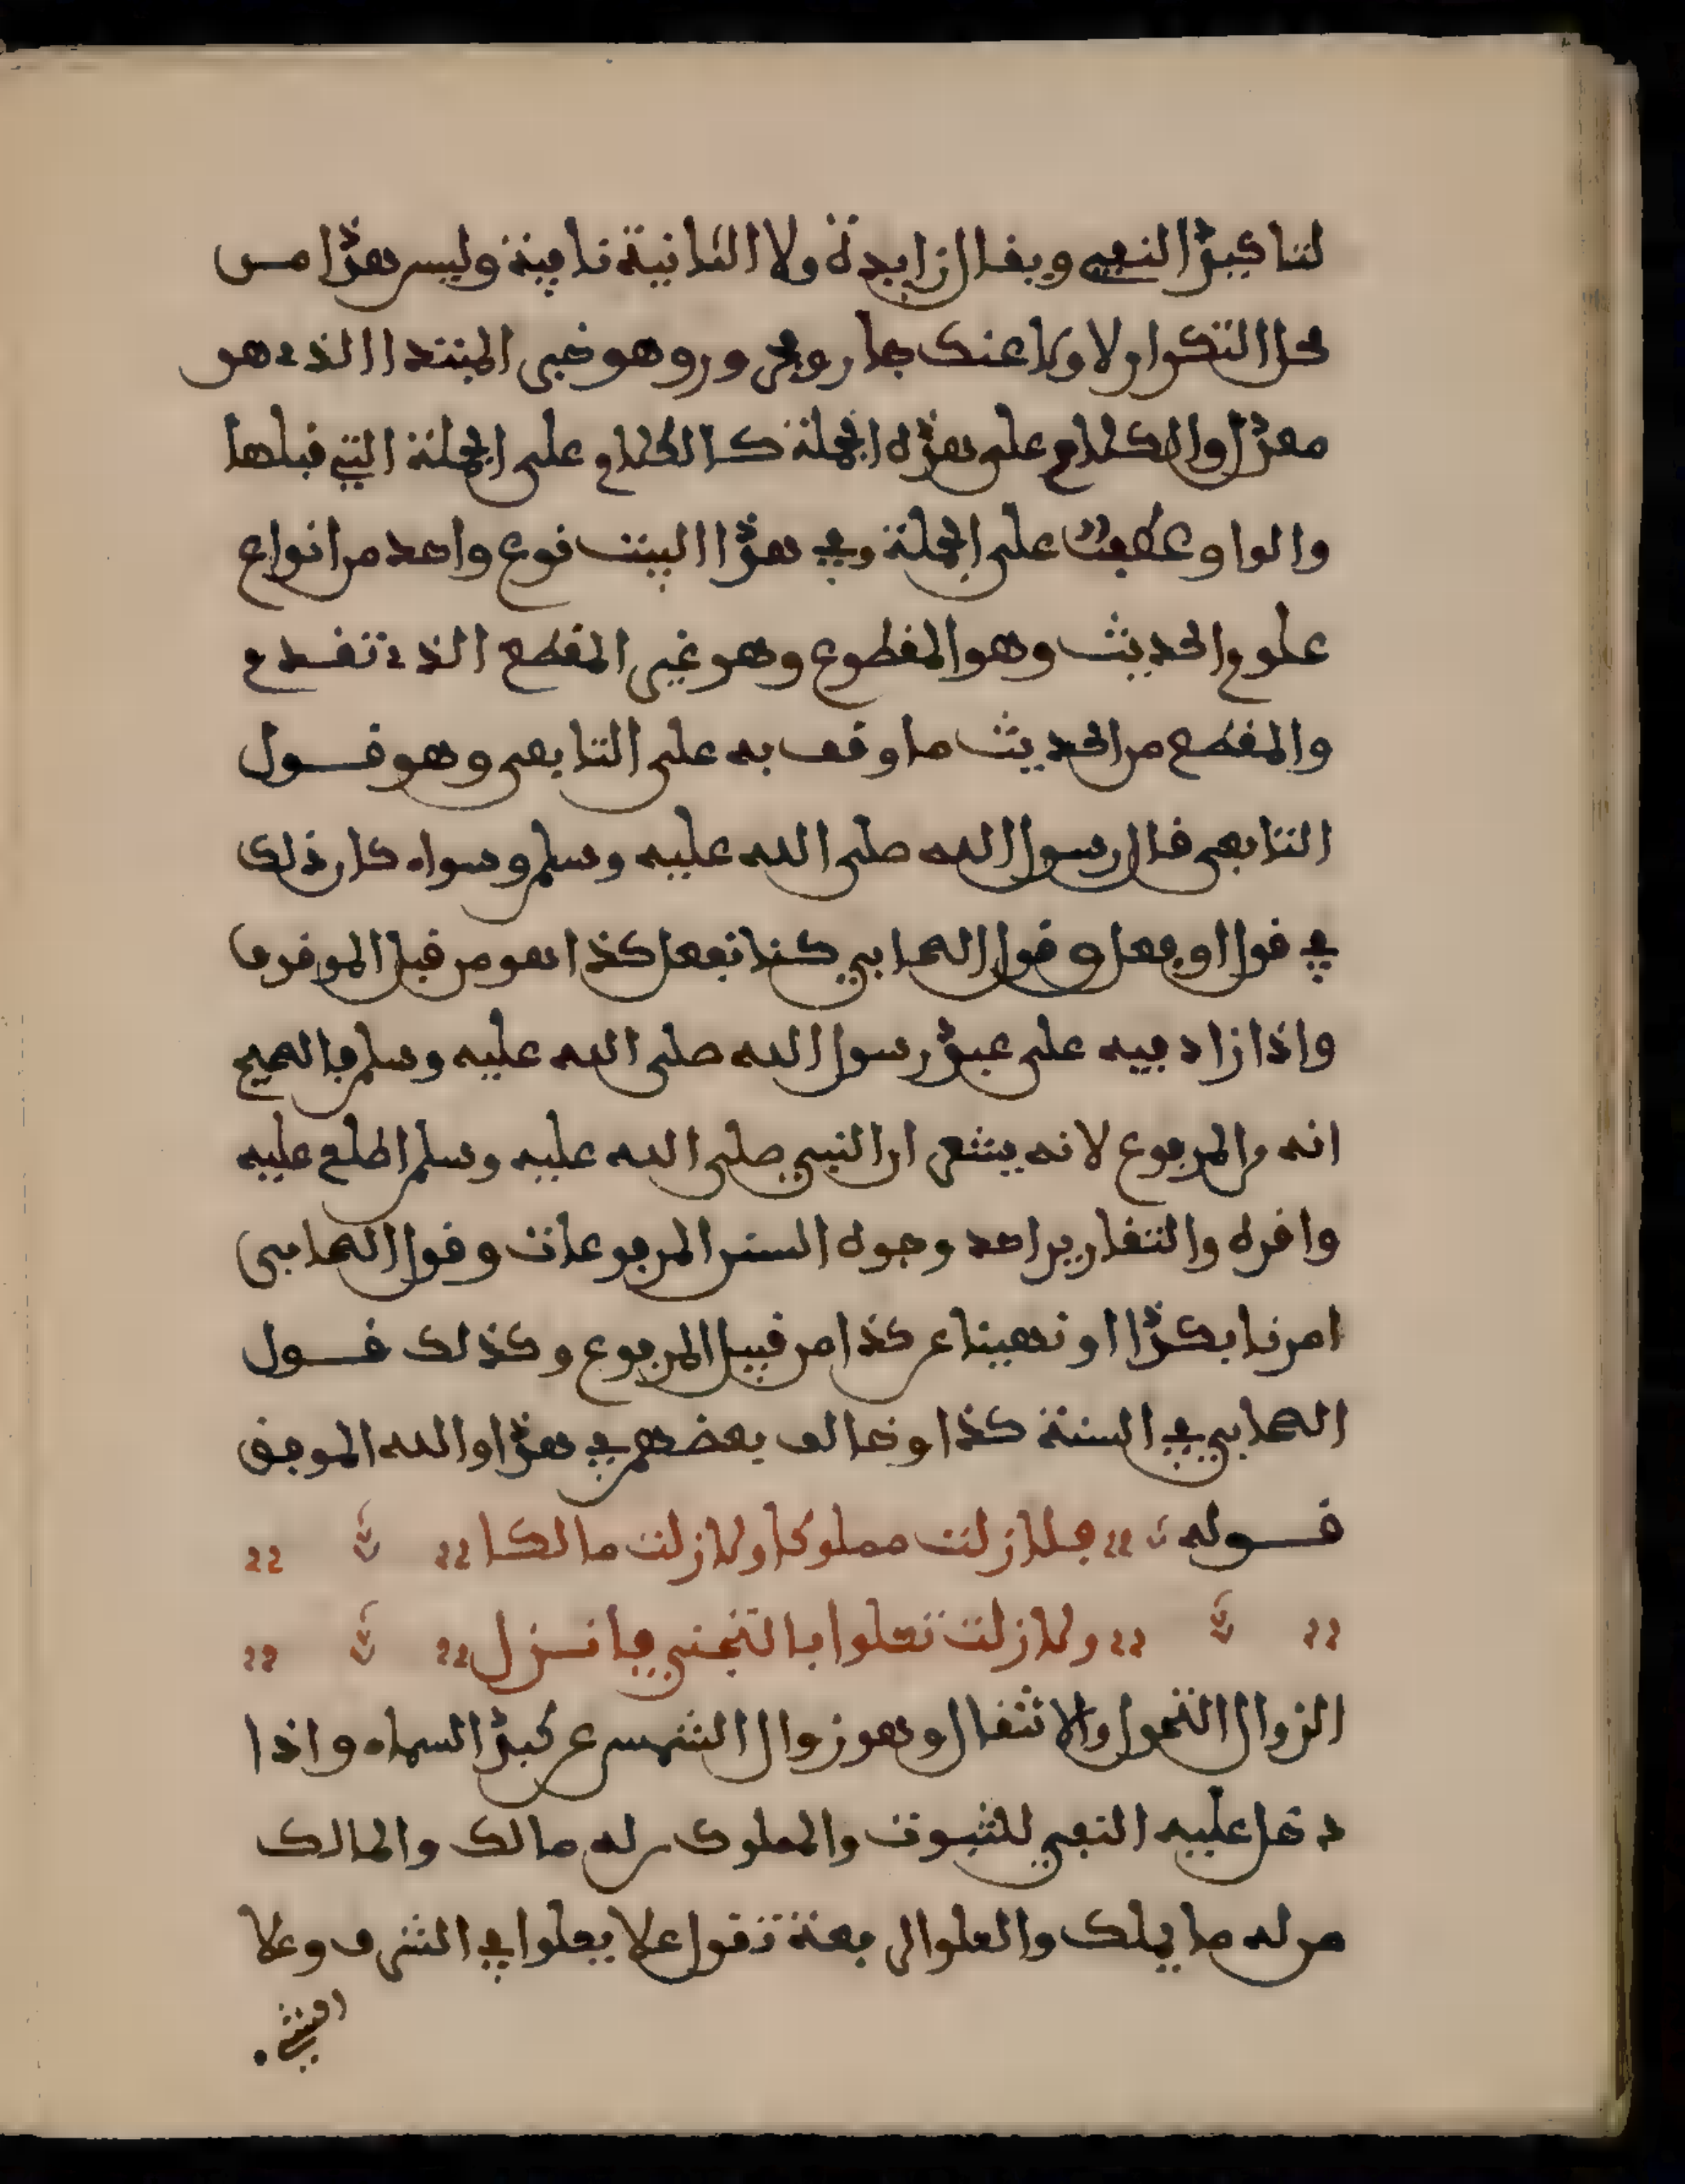 لتاكيد النفي ويقال زايدة ولا الثانية نافية وليس هذا من
محل التكرار ولا وعنك جار ومجرور وهو خبر المبتدا الذي هو
معز او الكلام على هذه الجملة كالكلام على الجملة التي قبلها
والواو عطفت على الجملة وفي هذا البيت نوع واحد من انواع
علوم الحديث وهو المقطوع وهو غير المقطع الذي تقدم
والمقطع من الحديث ما وقف به على التابعي وهو قول
التابعي قال رسول الله صلى الله عليه وسلم وسواء كان ذلك
في قول او فعل وقول الصحابي كنا نفعل كذا هو من قبل الموقوف
واذا زاد فيه على عهد رسول الله صلى الله عليه وسلم فالصحيح
انه من المرفوع لانه يشعر ان النبي صلى الله عليه وسلم اطلع عليه
واقره والتقارير احد وجوه السنن المرفوعات وقول الصحابي
امرنا بكذا او نهينا عن كذا من قبيل المرفوع وكذلك قول
الصحابي في السنة كذا وخالف بعضهم في هذا والله الموفق
قوله فلا زلت مملوكا ولا زلت مالكا
ولا زلت تعلوا بالتجني فانزل
الزوال التحول والانتقال وهو زوال الشمس عن كبد السماء واذا
دخل عليه النفي للثبوت والمملوك من له مالك والمالك
من له ما يملك والعلو الرفعة تقول علا يعلوا في الشرف وعلا